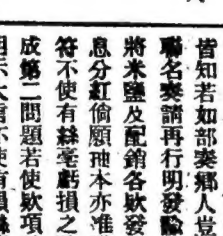 皆知若如部奏鄉人豈
聯名奏請再行明發諭
將米鹽及配銷各欵發
息分紅倘願刪本亦准
符不使有絲毫虧損之
成第二問題若使欵項